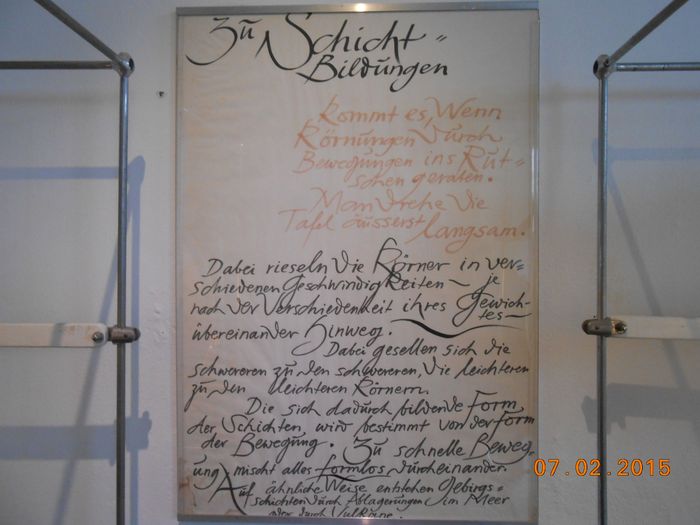 Zu Schicht=
Bildungen
kommt es, Wenn
Körnungen durch
Bewegungen ins Rut=
schen geraten.
Man drehe die
Tafel äusserst langsam!
Dabei rieseln die Körner in ver=
schiedenen Geschwindigkeiten – je
nach der Verschiedenheit ihres Gewich-
tes –
übereinander hinweg.
Dabei gesellen sich die
schwereren zu den schwereren, die leichteren
zu den leichteren Körnern.
Die sich dadurch bildende Form
der Schichten, wird bestimmt von der Form
der Bewegung. Zu schnelle Beweg=
ung mischt alles formlos durcheinander.
Auf ähnliche Weise entstehen Gebirgs=
schichten durch Ablagerungen im Meer
oder durch Vulkane.
07.02.2015